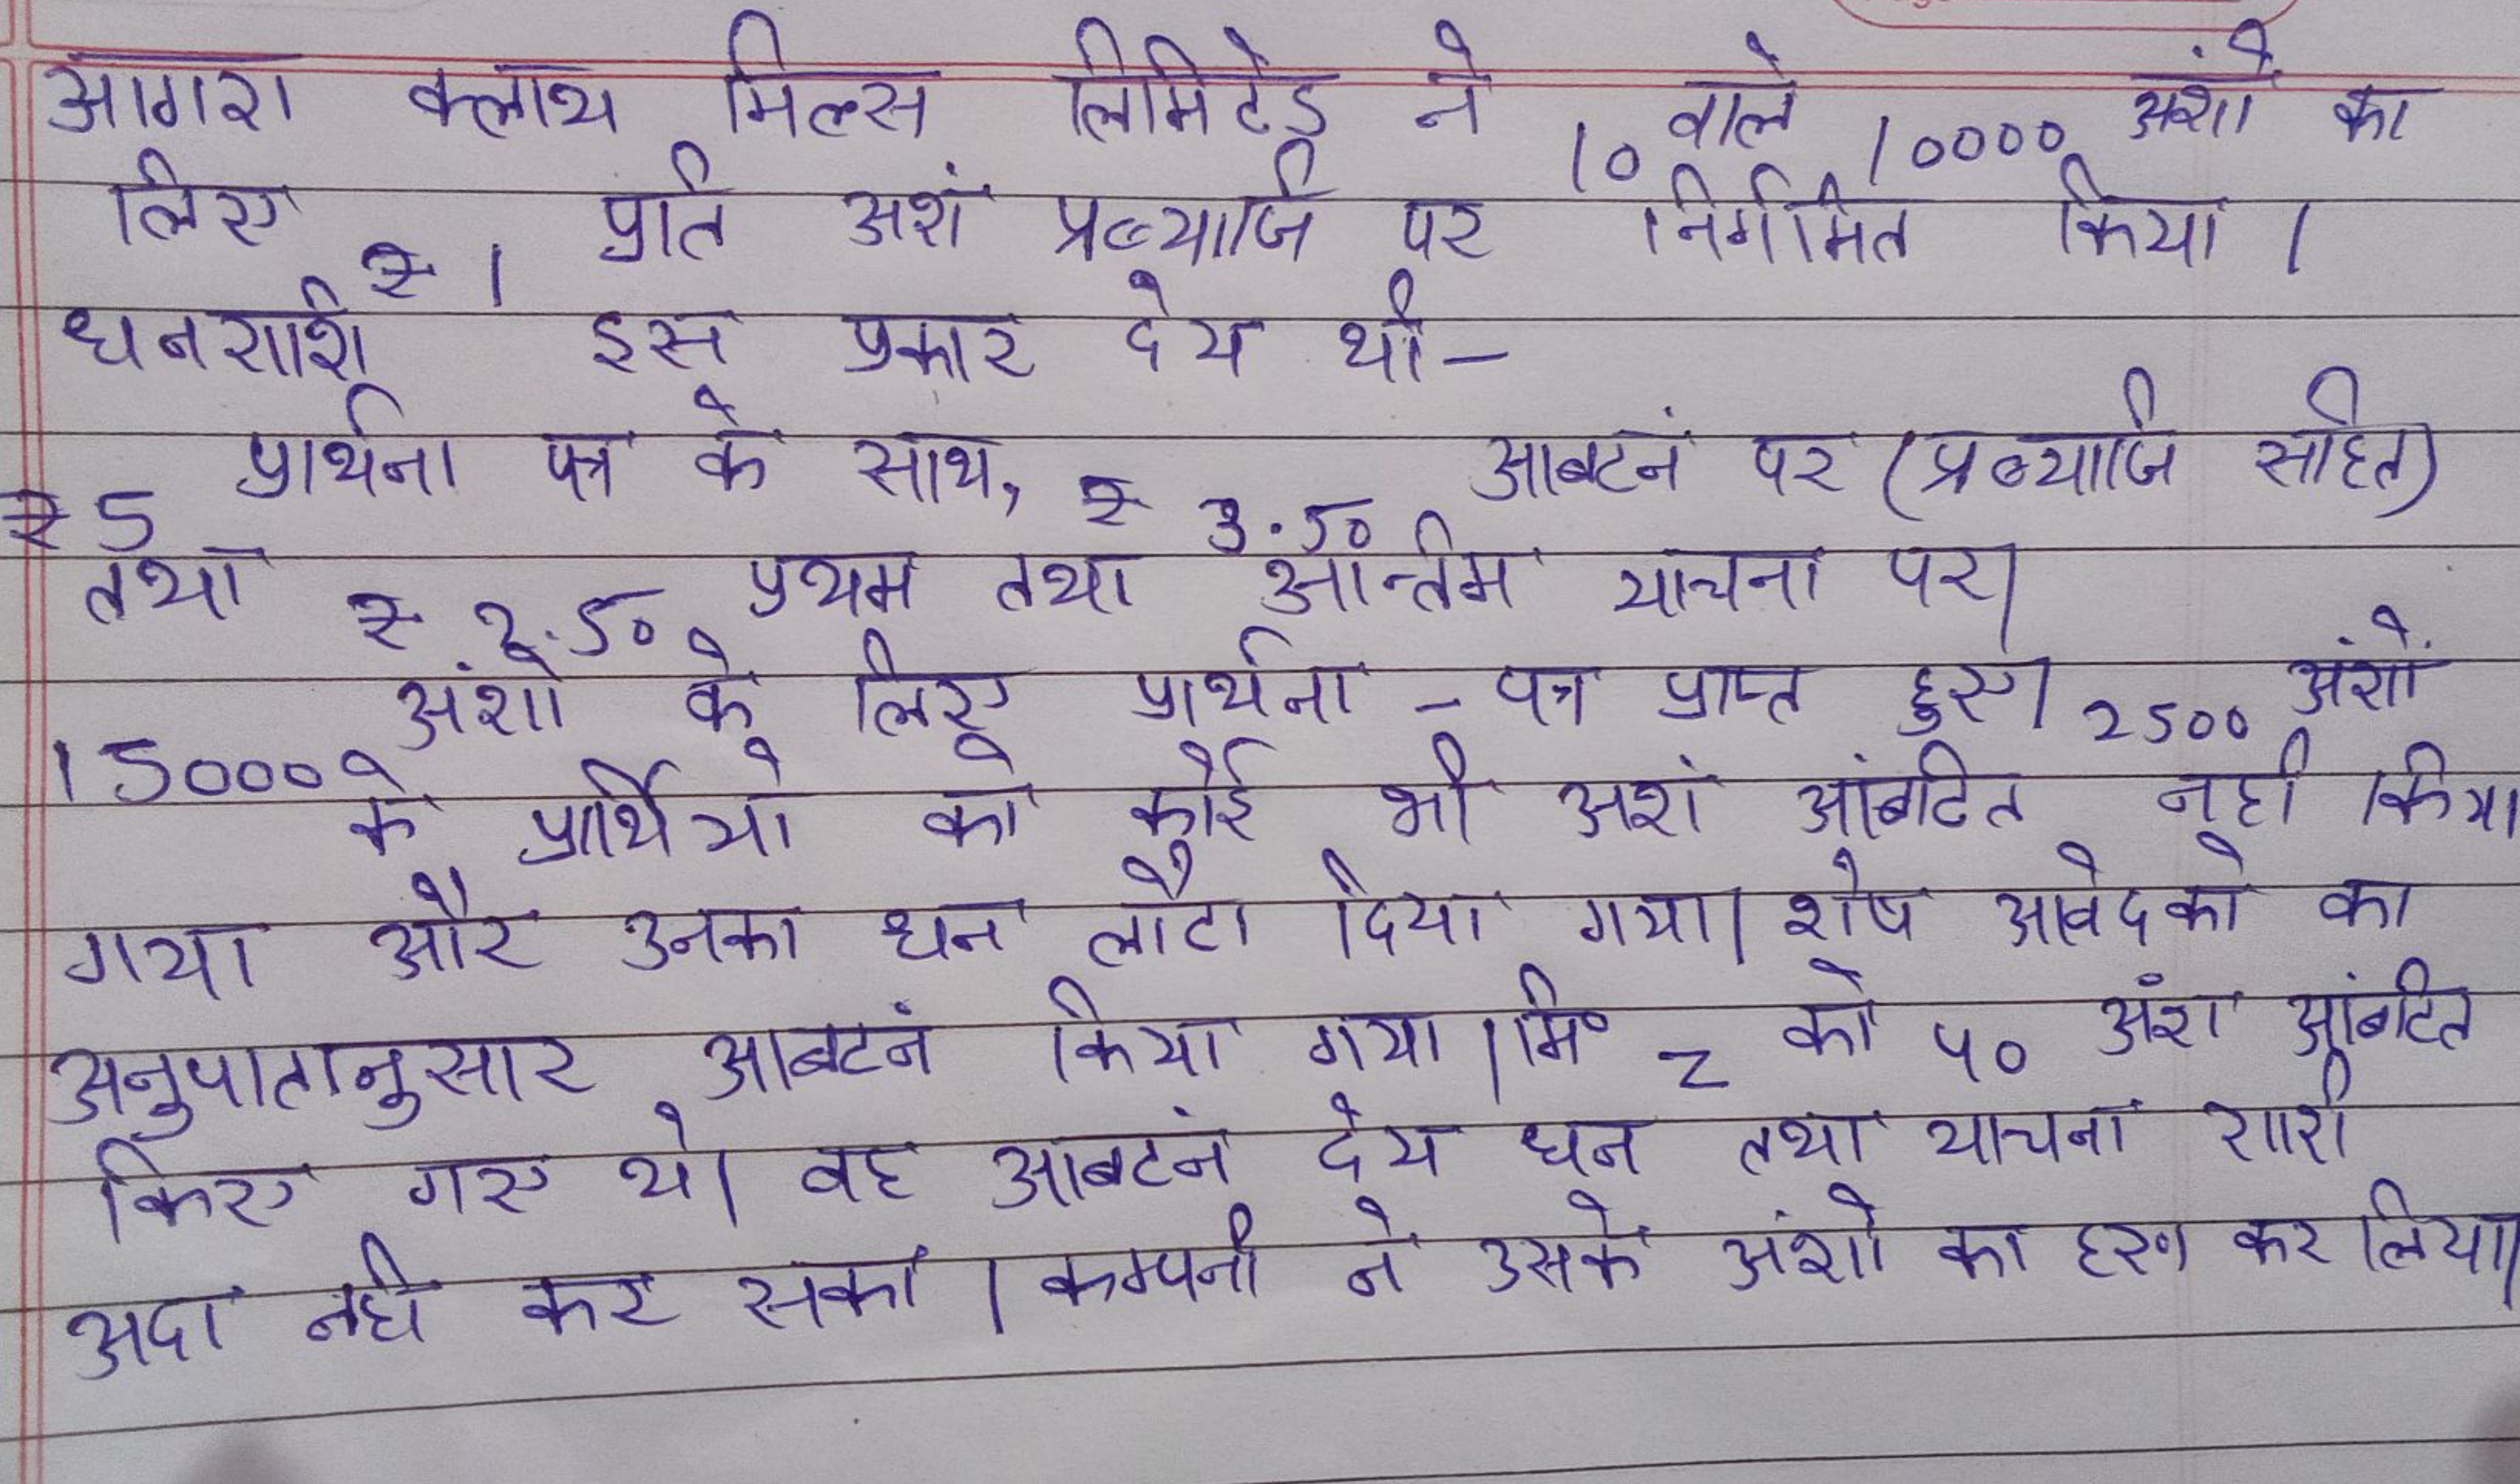 आगरा क्लाथ मिल्स लिमिटेड ने 10 वाले 10000 अंशों का
लिए ₹ 1 प्रति अशं प्रब्याजि पर निर्गमित किया ।
धनराशि इस प्रकार देय थी-
₹ 5 प्रार्थना पत्र के साथ, ₹ 3.50 आबटनं पर (प्रब्याजि सहित)
तथा ₹ 2.50 प्रथम तथा अन्तिम याचना पर।
15000 अंशो के लिए प्रार्थना - पत्र प्राप्त हुए। 2500 अंशों
के प्रार्थियो को कोई भी अशं आंबटित नही किया
गया और उनका धन लौटा दिया गया। शेष आवेदको का
अनुपातानुसार आबटनं किया गया । मि० Z को 40 अंश आंबटित
किए गए थे। वह आबटनं देय धन तथा याचना राशी
अदा नही कर सका । कम्पनी ने उसके अंशो का हरण कर लिया।